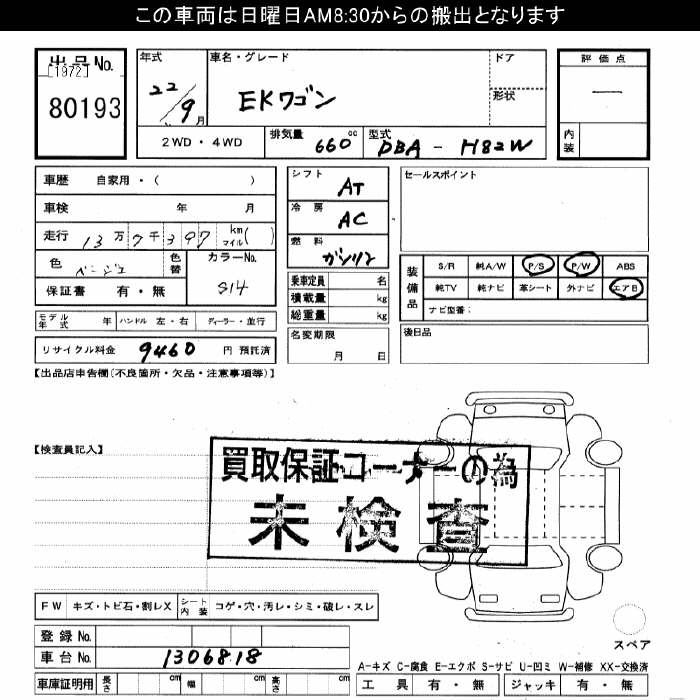 この車両は日曜日AM8:30からの搬出となります
出品No.
[1972]
80193
年式
22/9月
車名・グレード
EKワゴン
ドア
形状
評価点
—
内装
2WD・4WD
排気量 660 cc
型式 DBA - H82W
車歴 自家用・(
車検 年 月
走行 13万7千397 km マイル( )
色 ベージュ 色替
カラーNo. S14
保証書 有・無
シフト AT
冷房 AC
燃料 ガソリン
乗車定員 名
積載量 kg
総重量 kg
セールスポイント
装備品
S/R 純A/W P/S P/W ABS
純TV 純ナビ 革シート 外ナビ エアB
ナビ型番:
モデル年式 年 ハンドル 左・右 ディーラー・並行
名変期限 月 日
後日品
リサイクル料金 9460 円 預託済
【出品店申告欄(不良箇所・欠品・注意事項等)】
【検査員記入】
買取保証コーナーの為
未検査
FW キズ・トビ石・割レX シート内装 コゲ・穴・汚レ・シミ・破レ・スレ
スペア
登録No.
車台No. 1306818
A-キズ C-腐食 E-エクボ S-サビ U-凹ミ W-補修 XX-交換済
車庫証明用 長さ cm 幅 cm 高さ cm
工具 有・無 ジャッキ 有・無